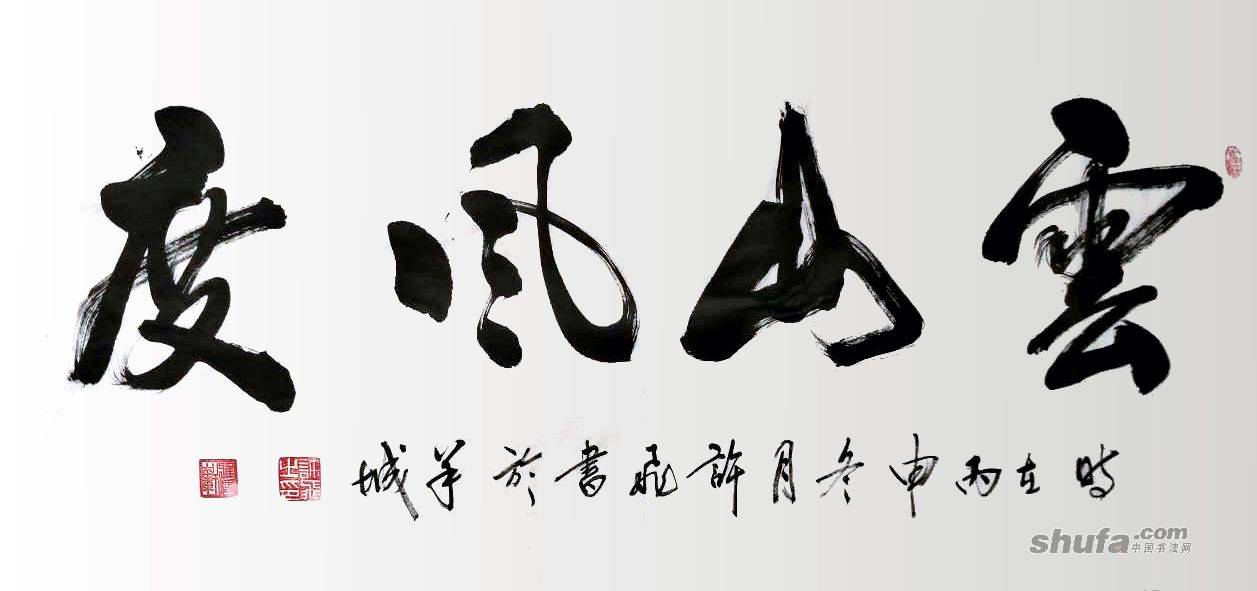 雲山風度
時在丙申冬月許飛書於羊城
許飛之印
shufa.com
中国书法网